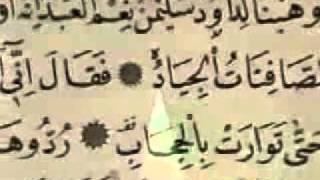 وَهَبْنَا لِدَاوُدَ سُلَيْمٰنَ نِعْمَ الْعَبْدُ اِنَّهُ
الصَّافِنَاتُ الْجِيَادُ ۞ فَقَالَ اِنّٖٓى
حَتّٰى تَوَارَتْ بِالْحِجَابِ ۞ رُدُّوهَا